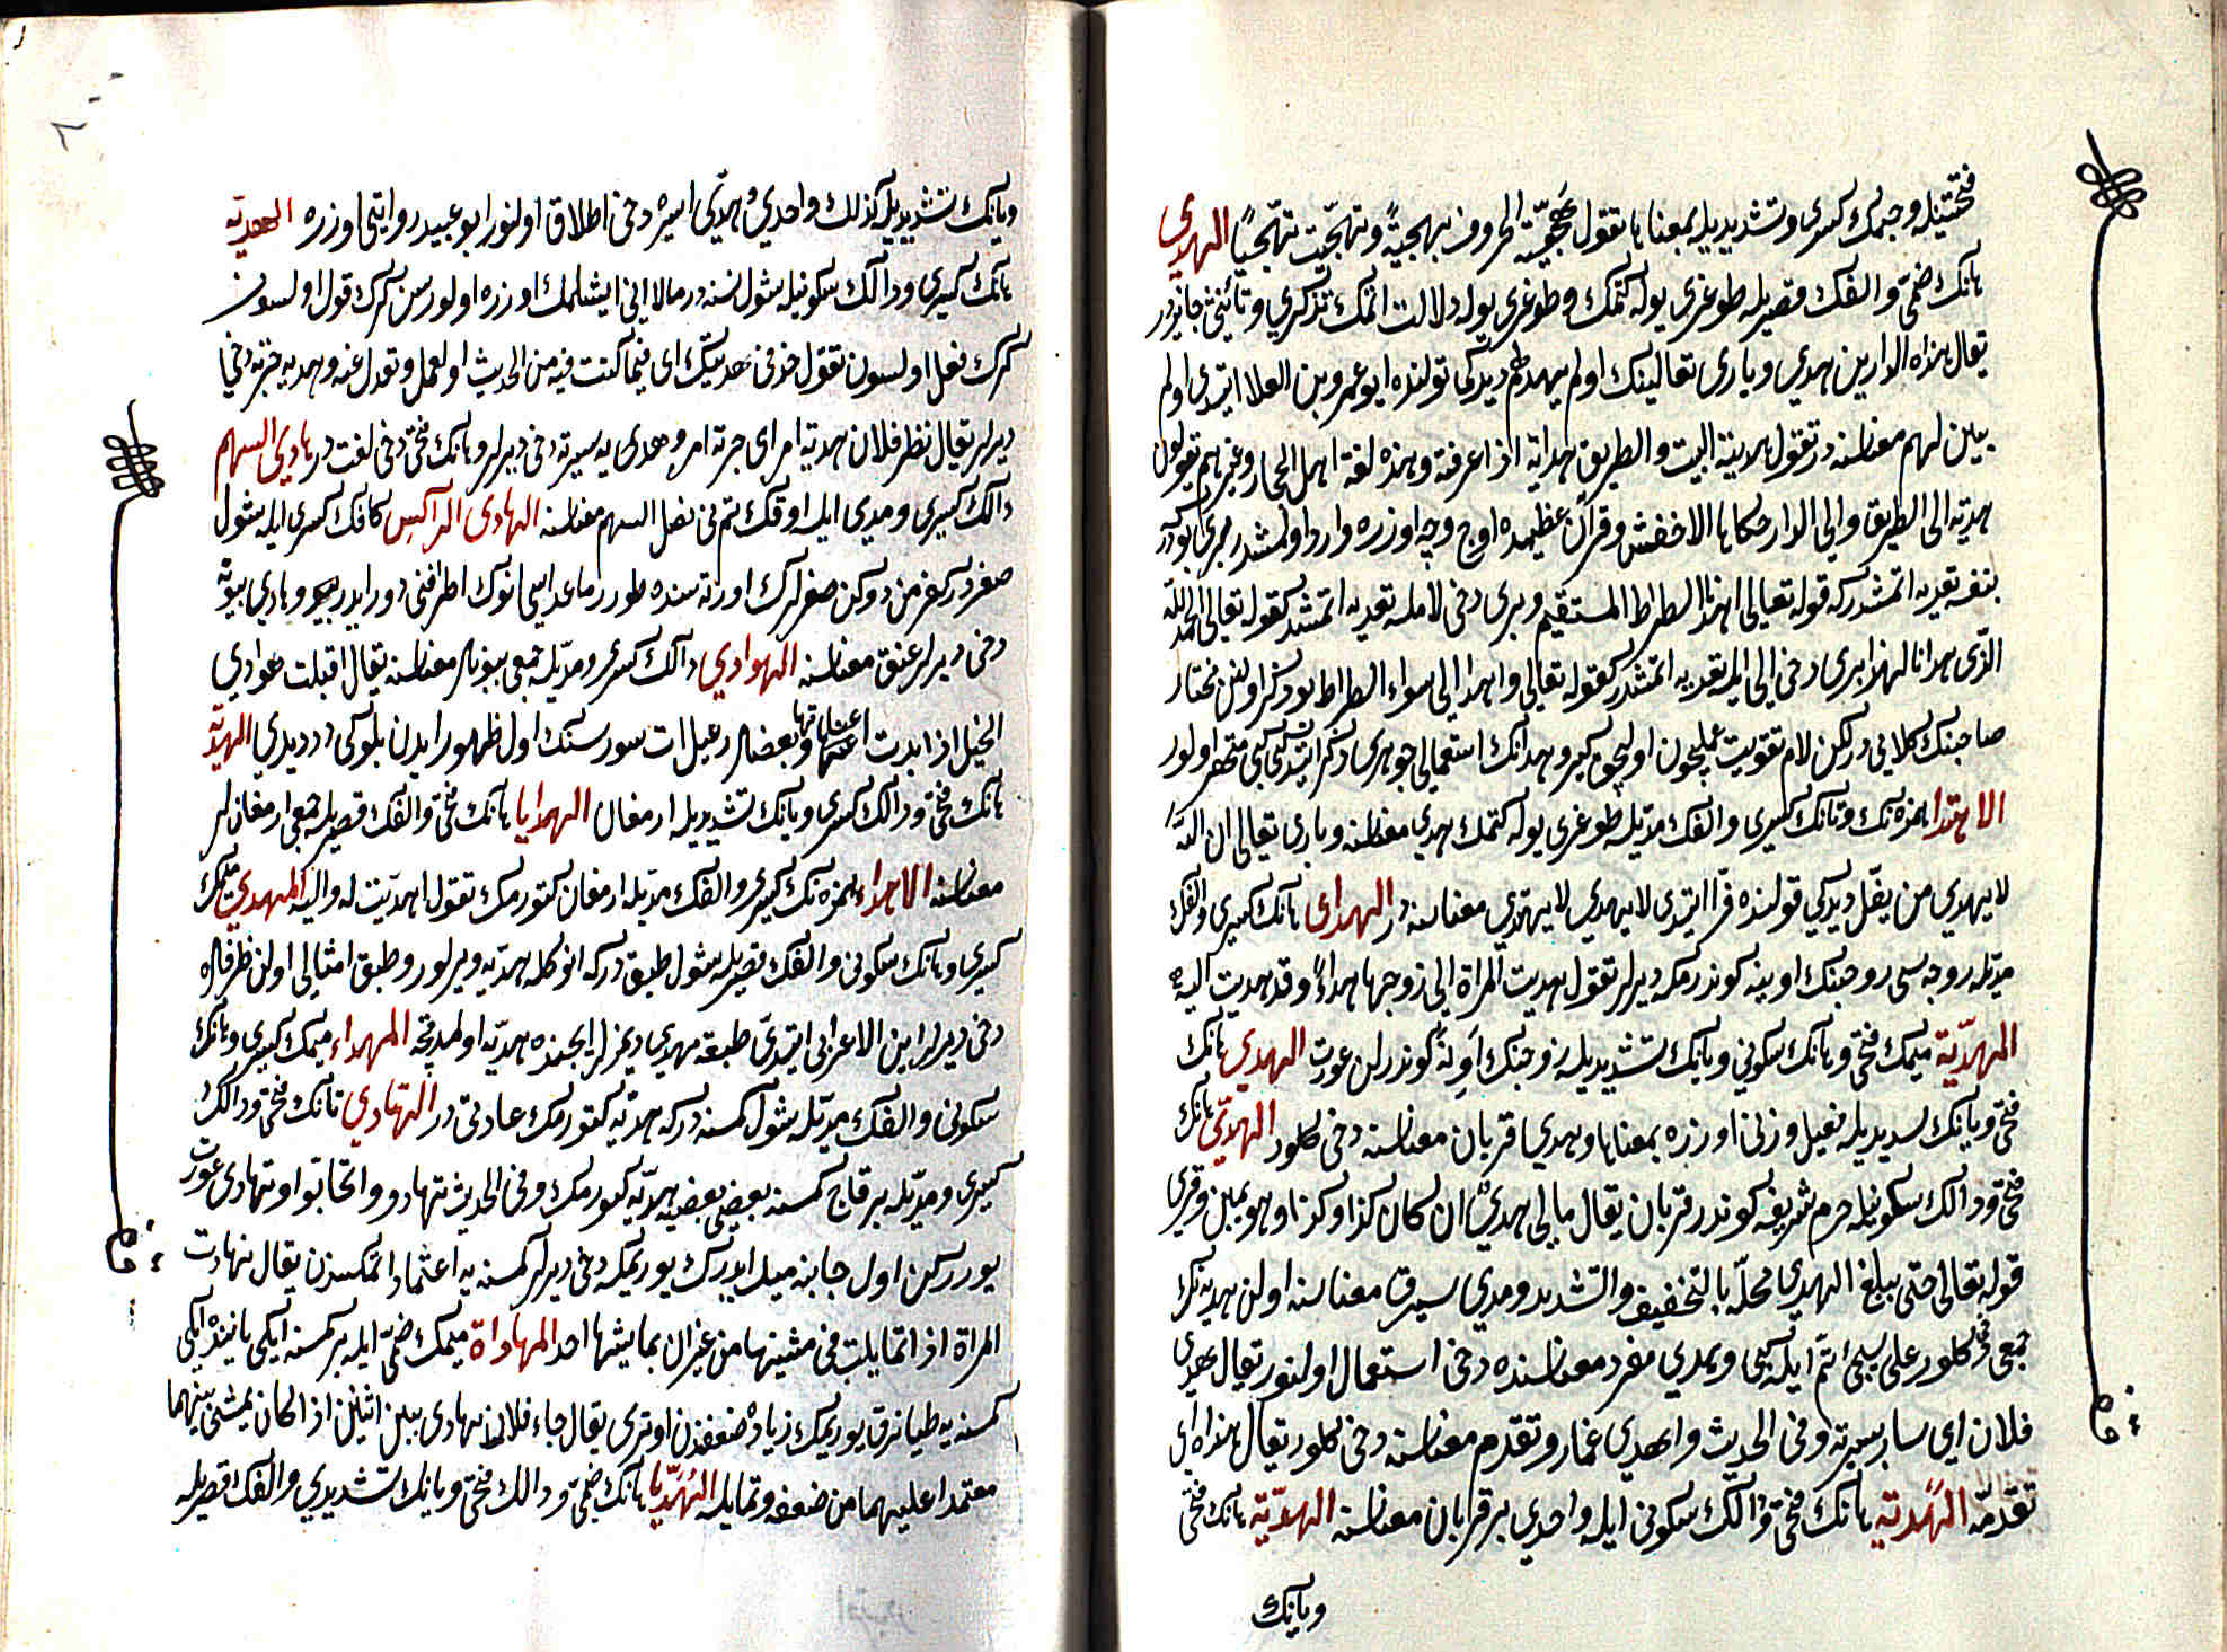 فتحتيله وجيمك كسرى وتشديديله بمعناها تقول هجّيت الحروف تهجيةً وتهجّيت تهجّيًا الهدى
هانك ضمى والفك قصريله طوغرى يوله كتمك وطوغرى يوله دلالت اتمك تذكيرى وتأنيثى جائزدر
يقال هذاه الدارين هدي وبارى تعالينك اولم يهد لهم ديدكى قولنده ابو عمرو بن العلا ايتدى اولم
يبين لهم معناسنه در تقول هديته البيت والطريق هداية اذا عرفته وهذه لغة اهل الحجاز وغيرهم يقولون
هديته الى الطريق والى الدار حكاها الاخفش وقرآن عظيمده اوج وجه اوزره وارد اولمشدر بىرى بودر كه
بنفسه تعديه اتمشدر كه قوله تعالى اهدنا الصراط المستقيم وبرى دخى لامله تعديه اتمشدر كقوله تعالى الحمد لله
الذى هدانا لهذا برى دخى الى ايله تعديه اتمشدر كقوله تعالى واهدنا الى سواء الصراط بو ذكر اولنن مختار
صاحبنك كلاميدر لكن لام تقويت عمل چون اولیچون كبرو هدانك استعمالى جوهرى ذكر ايتديكى كبى منحصر اولور
الاهتدا همزه نك وتانك كسرى والفك مديله طوغرى يوله كتمك هدى معناسنه وبارى تعالى ان الله
لا يهدى من يضلّ ديدكى قولنده فرّا ايتدى لا يهدى لا يهتدى معناسنه در الهداى هانك كسرى والفك
مديله زوجه سى زوجنك اوينه كوندرمكه ديرلر تقول هديت المراة الى زوجها هداءً وقد هديت اليه
المهديّة ميمك فتحى وهانك سكونى ويانك تشديديله زوجنك اَوِنَه كوندرلن عورت الهدي هانك
فتحى ويانك تشديديله فعيل وزنى اوزره بمعناها وهدى قربان معناسنه دخى كلور الهدّى هانك
فتحى ودالك سكونيله حرم شريفه كوندر قربان يقال مالى هدىٌ ان كان كذا وكذا وهو يمين وقرى
قوله تعالى حتى يبلغ الهدى محلّه بالتخفيف والتشديد وهدى سيرق معناسنه اولن هديه نك
جمعى دخى كلور على يسلى اتم ايله كبى وهدى مفرد معناسنده دخى استعمال اولنور يقال هدى
فلان اي سار بسيرته وفى الحديث واهدي عمار وتقدم معناسنه دخى كلور يقال هذاه اى
تقدّمه الهَدْية هانك فتحى ودالك سكونى ايله واحدى بر قربان معناسنه الهديّة هانك فتحى
ويانك
ويانك تشديديله كذلك واحدى وهدّى اسيره دخى اطلاق اولنور ابو عبيد روايتى اوزره الهدية
هانك كسرى ودالك سكونيله شول نسنه در مالا انى ايشلمك اوزره اولورسن كرك قول اولسون
كرك فعل اولسون تقول خذ فى هديتك اى فيما كنت فيه من الحديث او العمل وتعدل عنه وهديه جزته دخى
ديرلر يقال نظر فلان هدية امر اى جرته امر وهدى يه سيرته دخى ديرلر وهانك فتحى دخى لغت در هادى السهم
دالك كسرى ومدى ايله اوقك تمرنى نصل السهم معناسنه الهادى الراكس كافك كسرى ايله شول
صغردر كه خرمن دوكن صغرلرك اورته سنده طورر ماعداسى انوك اطرافنى دور ايدرلر وهادى بيونه
دخى ديرلر عنق معناسنه الهوادي دالك كسر ومديله جمعى بيونلر معناسنه يقال اقبلت هوادي
الخيل اذا بدت اعناقها وبعضلر رعيل ات سورسنك اول ظهور ايدن بلوكى در ديدي الهديّة
هانك فتحى ودالك كسرى ويانك تشديديله ارمغان الهدايا هانك فتحى والفك قصريله جمعى ارمغانلر
معناسنه الاهداء همزه نك كسرى والفك مديله ارمغان كتورمك تقول اهديت له واليه المهدى ميمك
كسرى وهانك سكونى والفك قصريله شول طبق در كه انوكله هديه ويرلور وطبق امثالى اولن ظرفلره
دخى ديرلر ابن الاعرابى ايتدى طبقه مهدى ديمزلر ايچنده هديه اولمدقچه المهداء ميمك كسرى وهانك
سكونى والفك مديله شول كمسنه در كه هديه كتورمك عادتى در التهادي تانك فتحى ودالك
كسرى ومديله بر قاج كمسنه بعضى بعضيه هديه كتورمك وفى الحديث تهادوا وتحابوا وتهادى عورت
يورركن اول جانبه ميل ايدرك يوريمكه دخى ديرلر كمسنه يه اعتماد اتمكسزن يقال تهادت
المراة اذا تمايلت فى مشيتها من غير ان يماشيها احد المهاداة ميمك ضمى ايله بر كمسنه ايكى يانينده ايكى
كمسنه يه طيانرق يوريمك زياده ضعفندن اوترى يقال جاء فلان يهادى بين اثنين اذا كان يمشى بينهما
معتمدا عليهما من ضعفه وتمايله الهُدَيّا هانك ضمى ودالك فتحى ويانك تشديدي والفك قصريله